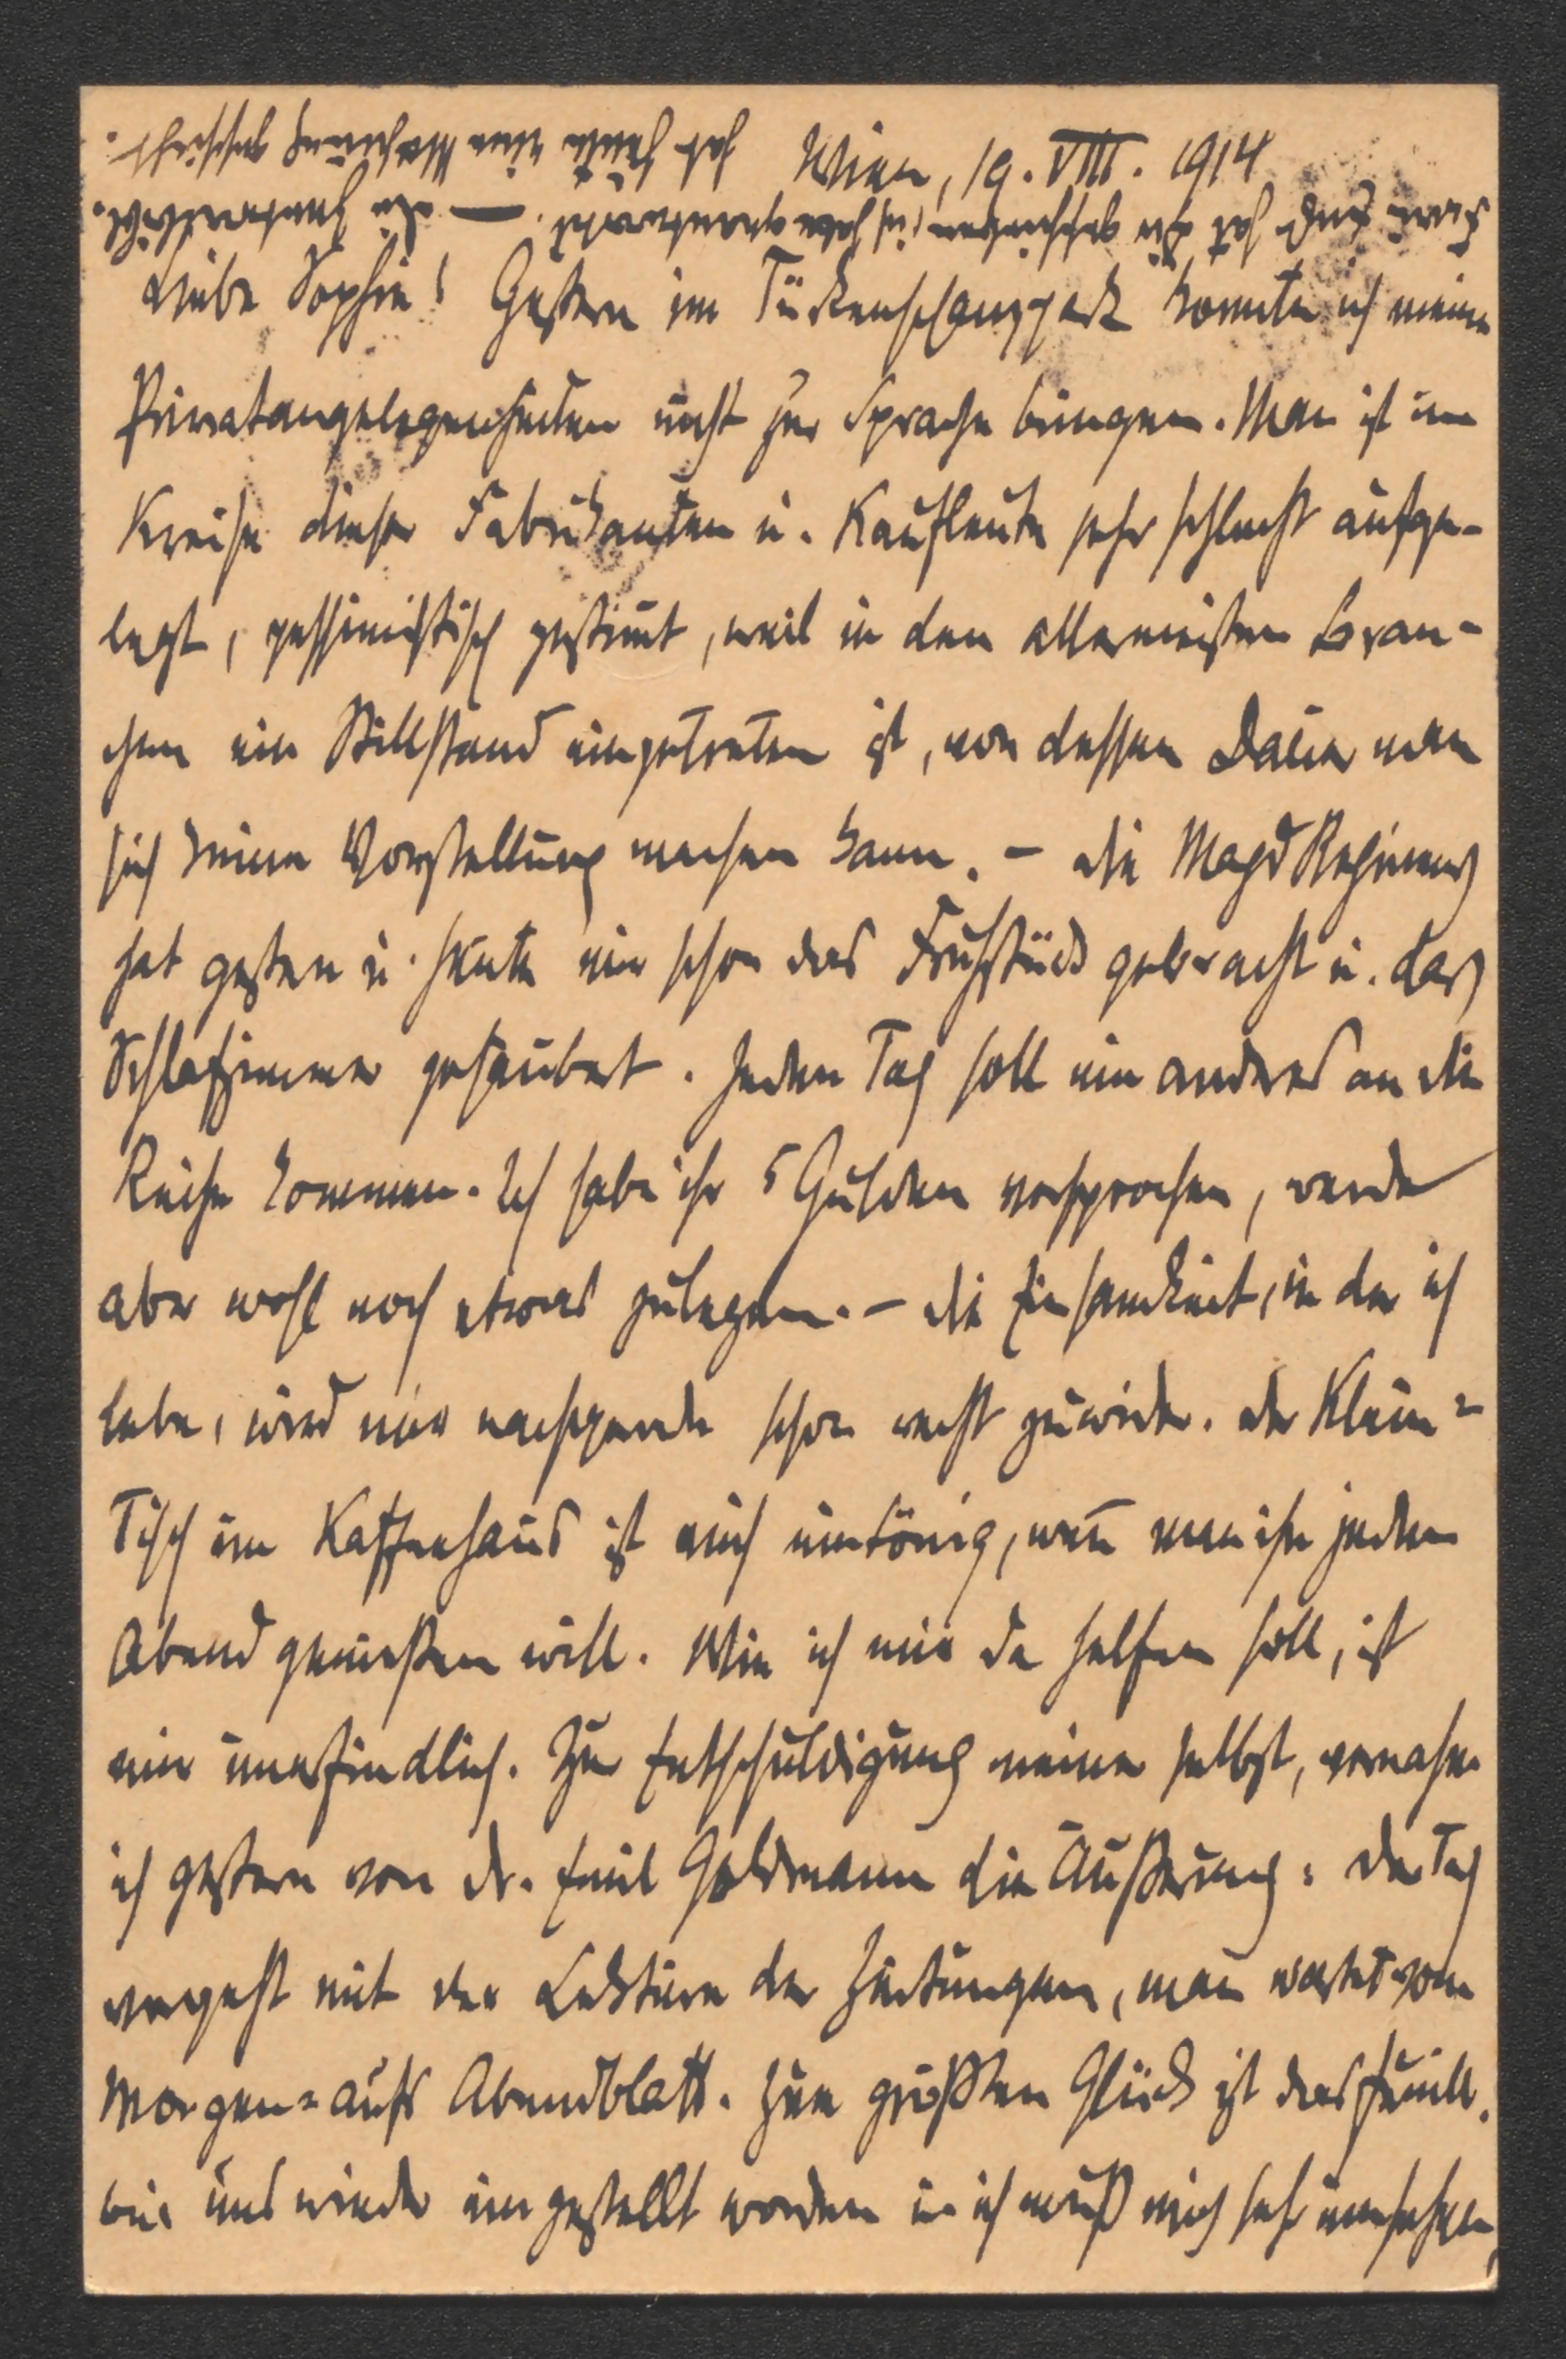 Wien, 19. VIII. 1914
Liebe Sophie! Gestern im Türkenschanzpark konnte ich meine
Privatangelegenheiten nicht zur Sprache bringen. Man ist im
Kreise dieser Fabrikanten u. Kaufleute sehr schlecht aufge-
legt, pessimistisch gestimt, weil in den allermeisten Bran-
chen ein Stillstand eingetreten ist, von dessen Dauer man
sich keine Vorstellung machen kann. – Die Magd
hat gestern u. heute mir schon das Frühstück gebracht u. das
Schlafzimmer gesäubert. Jeden Tag soll ein anderes an die
Reihe kommen. Ich habe ihr 5 Gulden versprochen, werde
aber wohl noch etwas zulegen. – Die Einsamkeit, in der ich
lebe, wird mir nachgerade schon recht zuwider. Der Klein-
Tisch im Kaffeehaus ist auch eintönig, wen man ihn jeden
Abend genießen will. Wie ich mir da helfen soll, ist
mir unerfindlich. Zur Entschuldigung meiner selbst, vernahm
ich gestern von Dr. Emil Goldmann die Äußerung: Der Tag
vergeht mit der Lektüre der Zeitungen, man wartet vom
Morgen- aufs Abendblatt. Zum größten Glück ist das Feuill.
bei uns wieder eingestellt worden u ich muß mich sehr umsehen,
Frau hat Dir geschrieben, ich habe geantwortet. – Die
hat heute eine Mahnung geschickt.